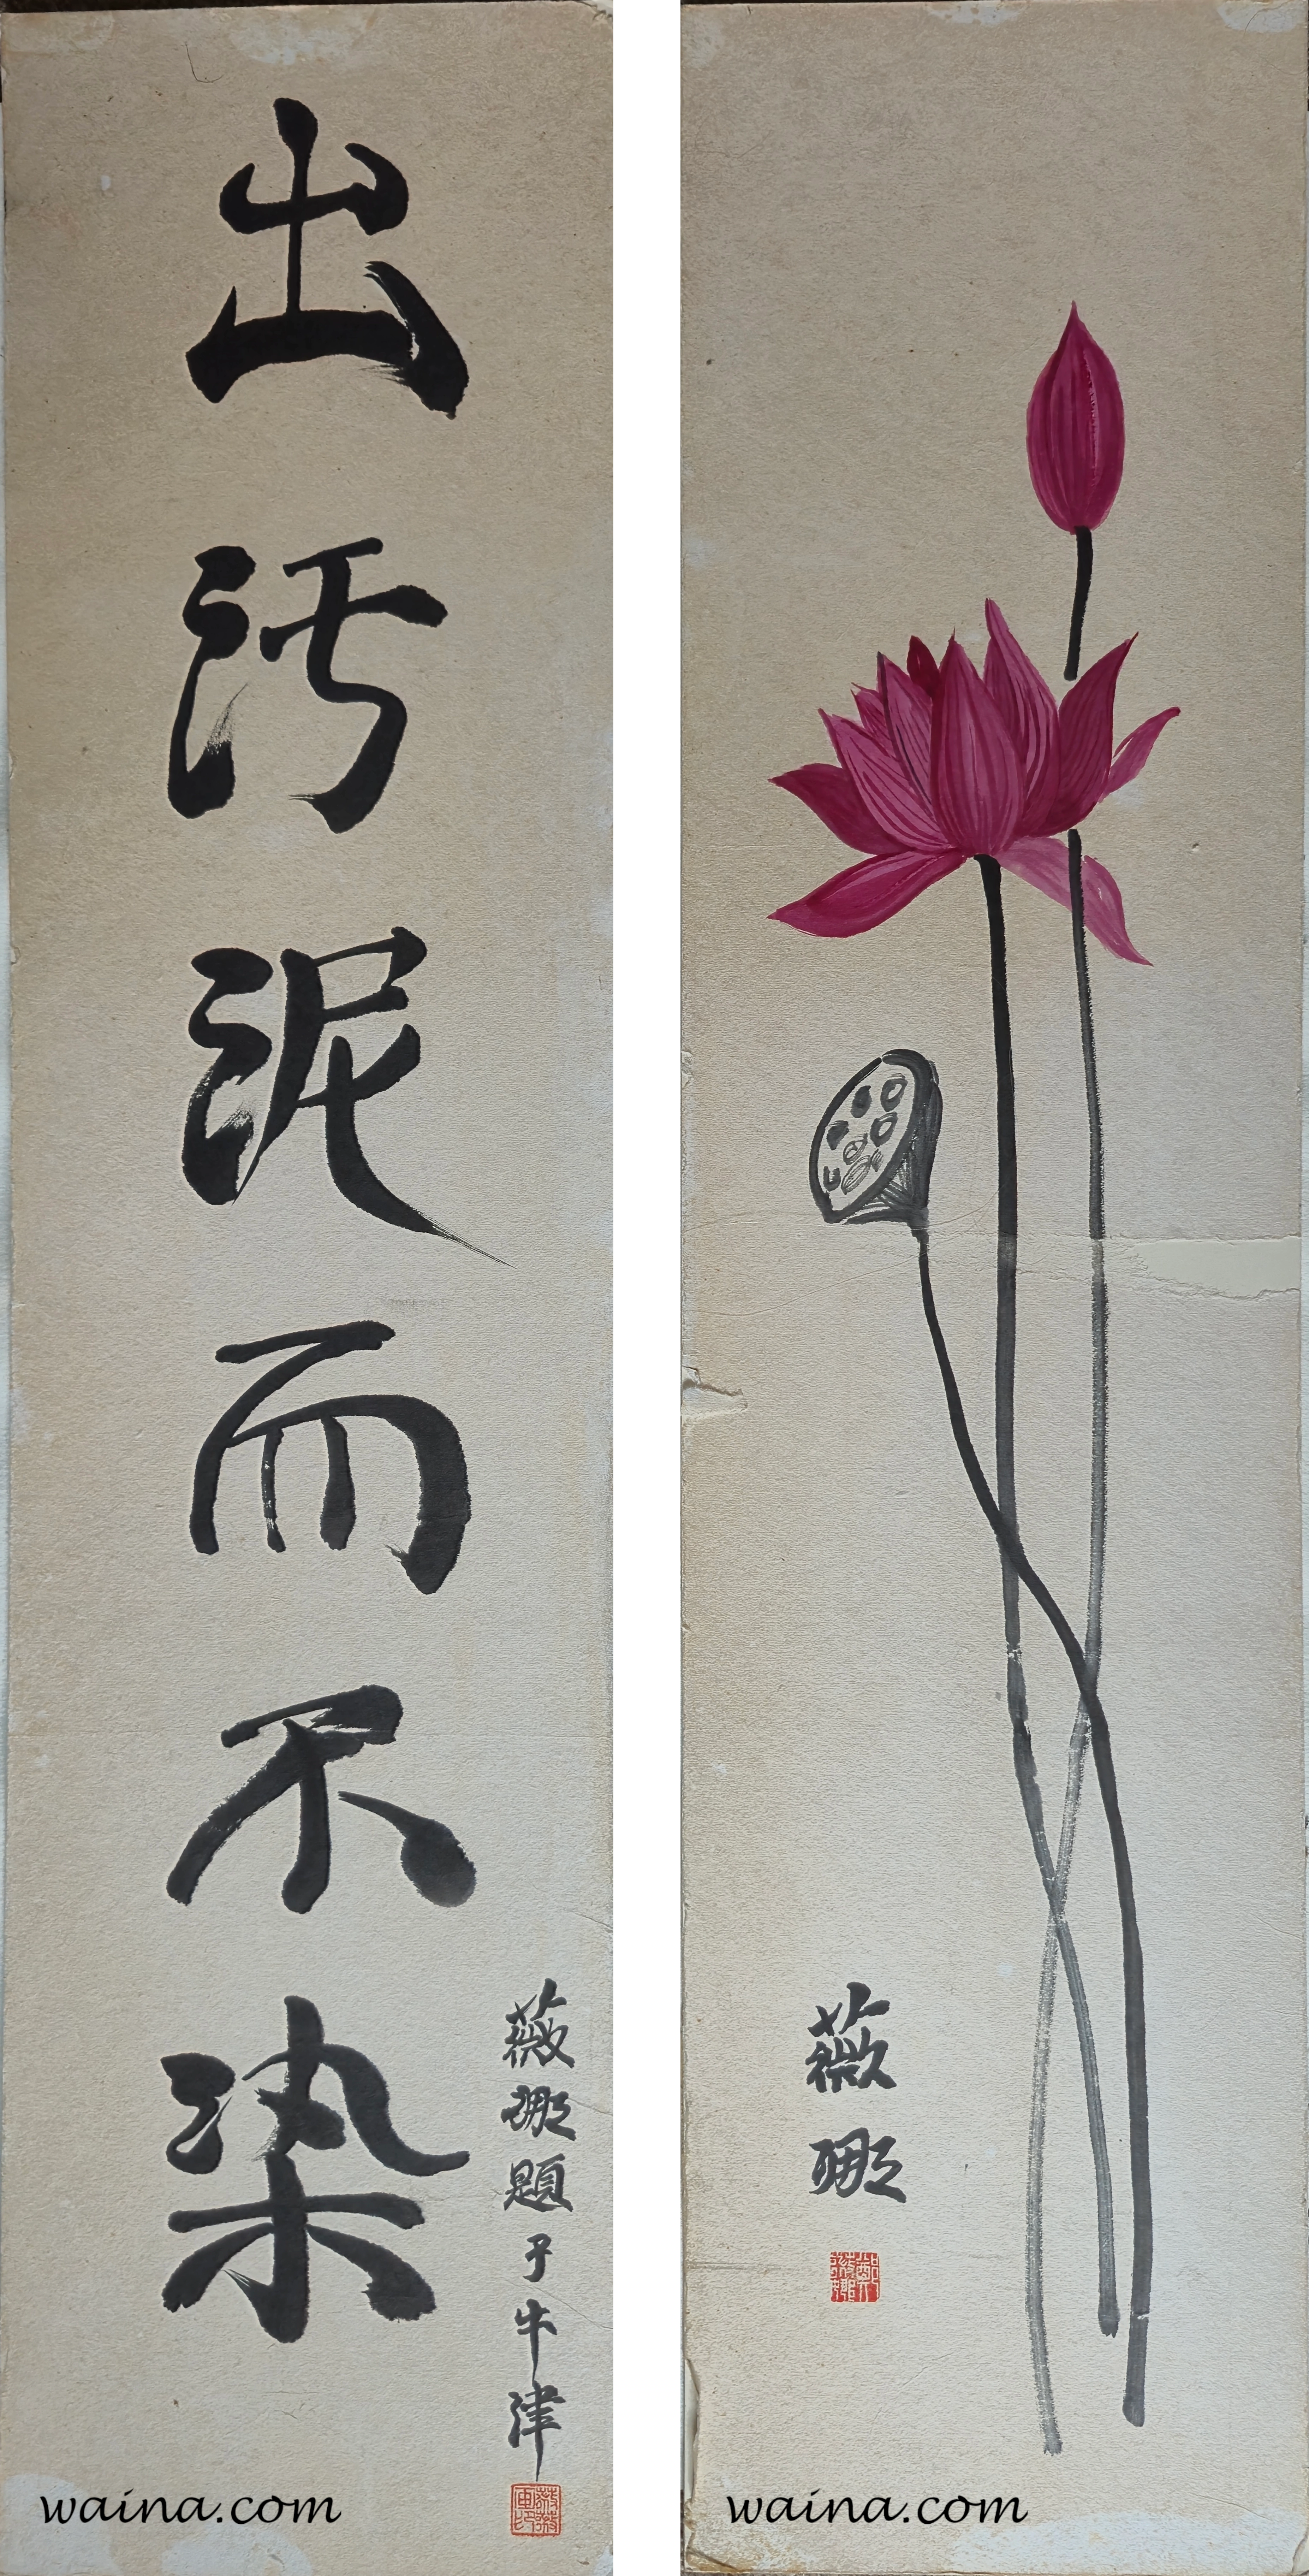 出污泥而不染
薇娜題于牛津
waina.com
薇娜
waina.com